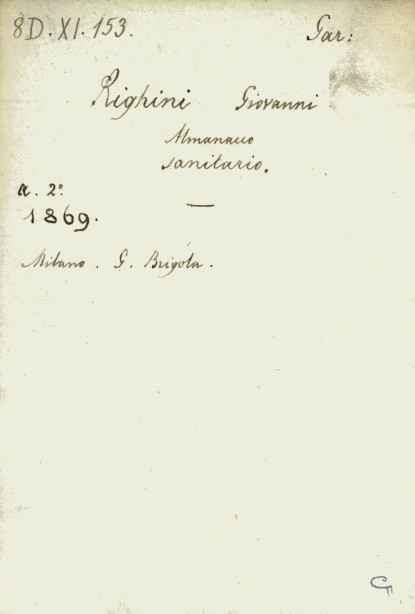 8D.XI.153. Gar:
Righini Giovanni
Almanacco
sanitario.
a. 2º
1869.
Milano. G. Brigola.
G